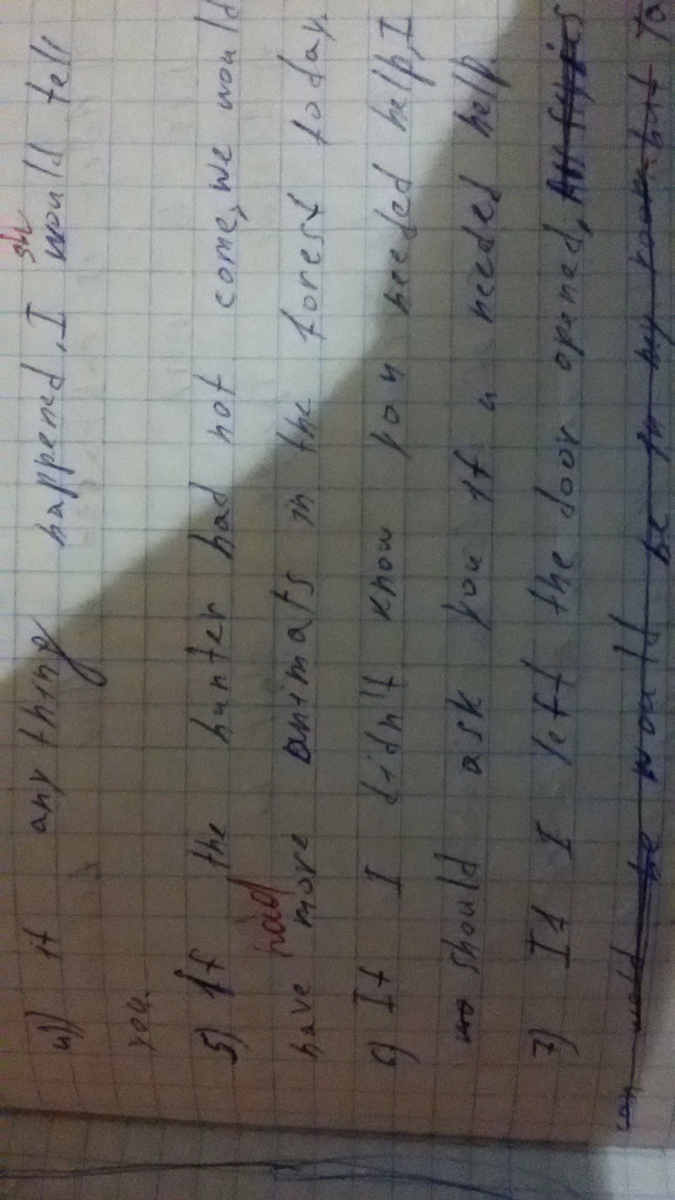 4) if anything happened, I would tell
sh
you.
5) If the hunter had not come, we would
had
have more animals in the forest today.
6) If I didn't know you needed help, I
should ask you if u needed help.
7) If I left the door opened,
be would be in my room but